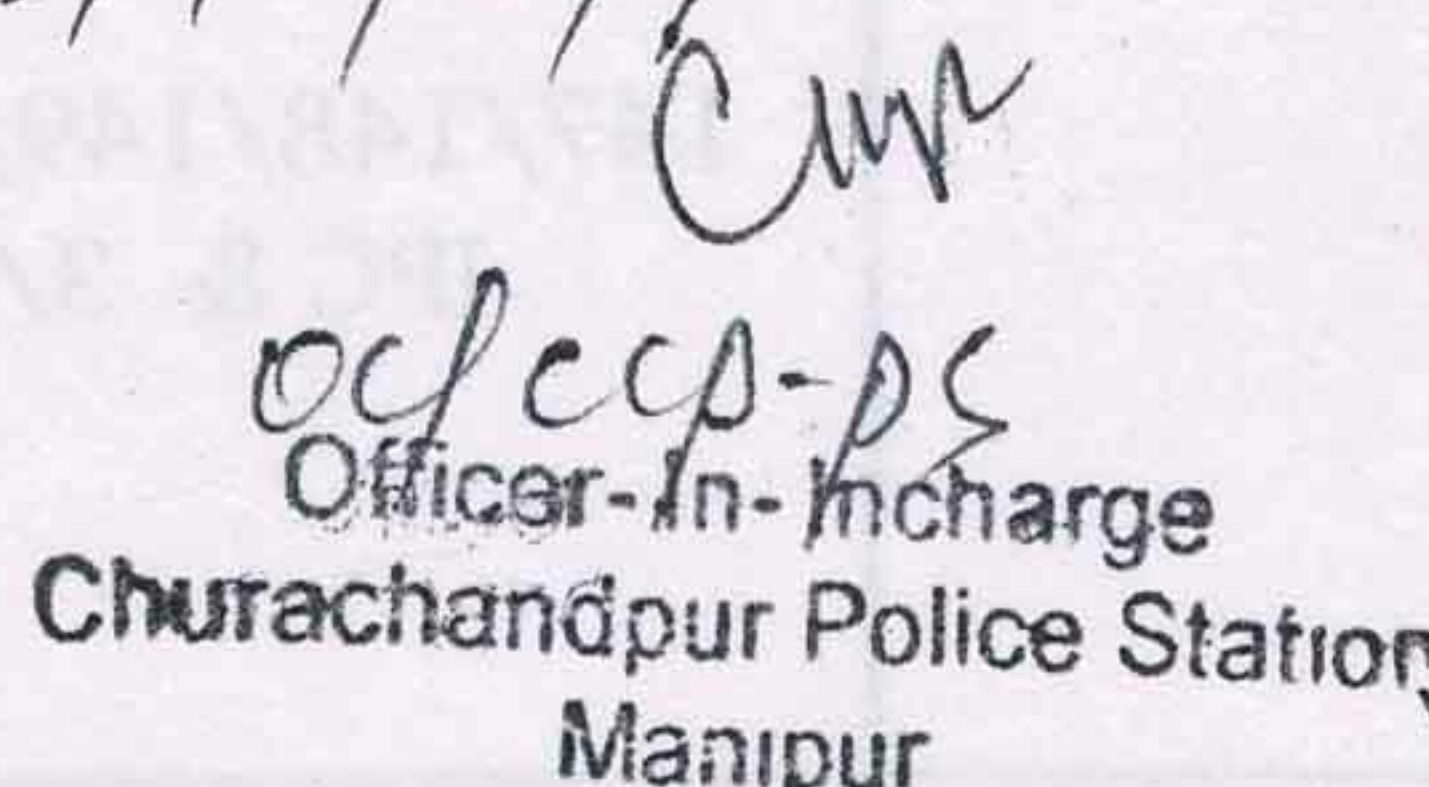 OC/CCP-PS
Officer-In-Incharge
Churachandpur Police Station
Manipur